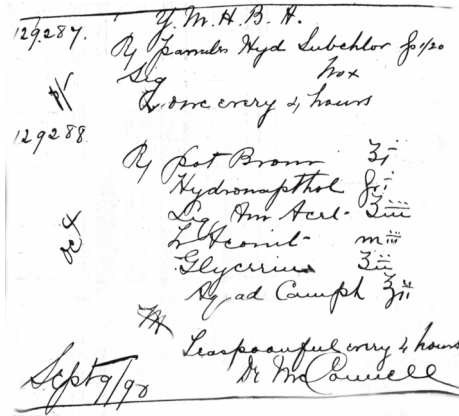 Y. M. H. B. A.
129287. ℞ Granules Hyd Subchlor gr 1/20
Sig No x
one every 2 hours
129288.
℞ Pot Brom ʒi
Hydronapthol gr i
Liq Am Acet- ʒiii
Tr Aconit- m iii
Glycerine ʒii
Aq ad Camph ℥ii
Teaspoonful every 2 hours
Sept 9/90 Dr McConnell